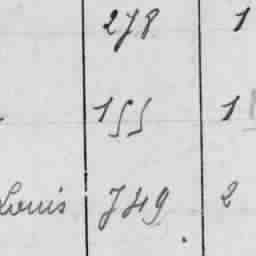 278 1
155 1
Louis 749 2